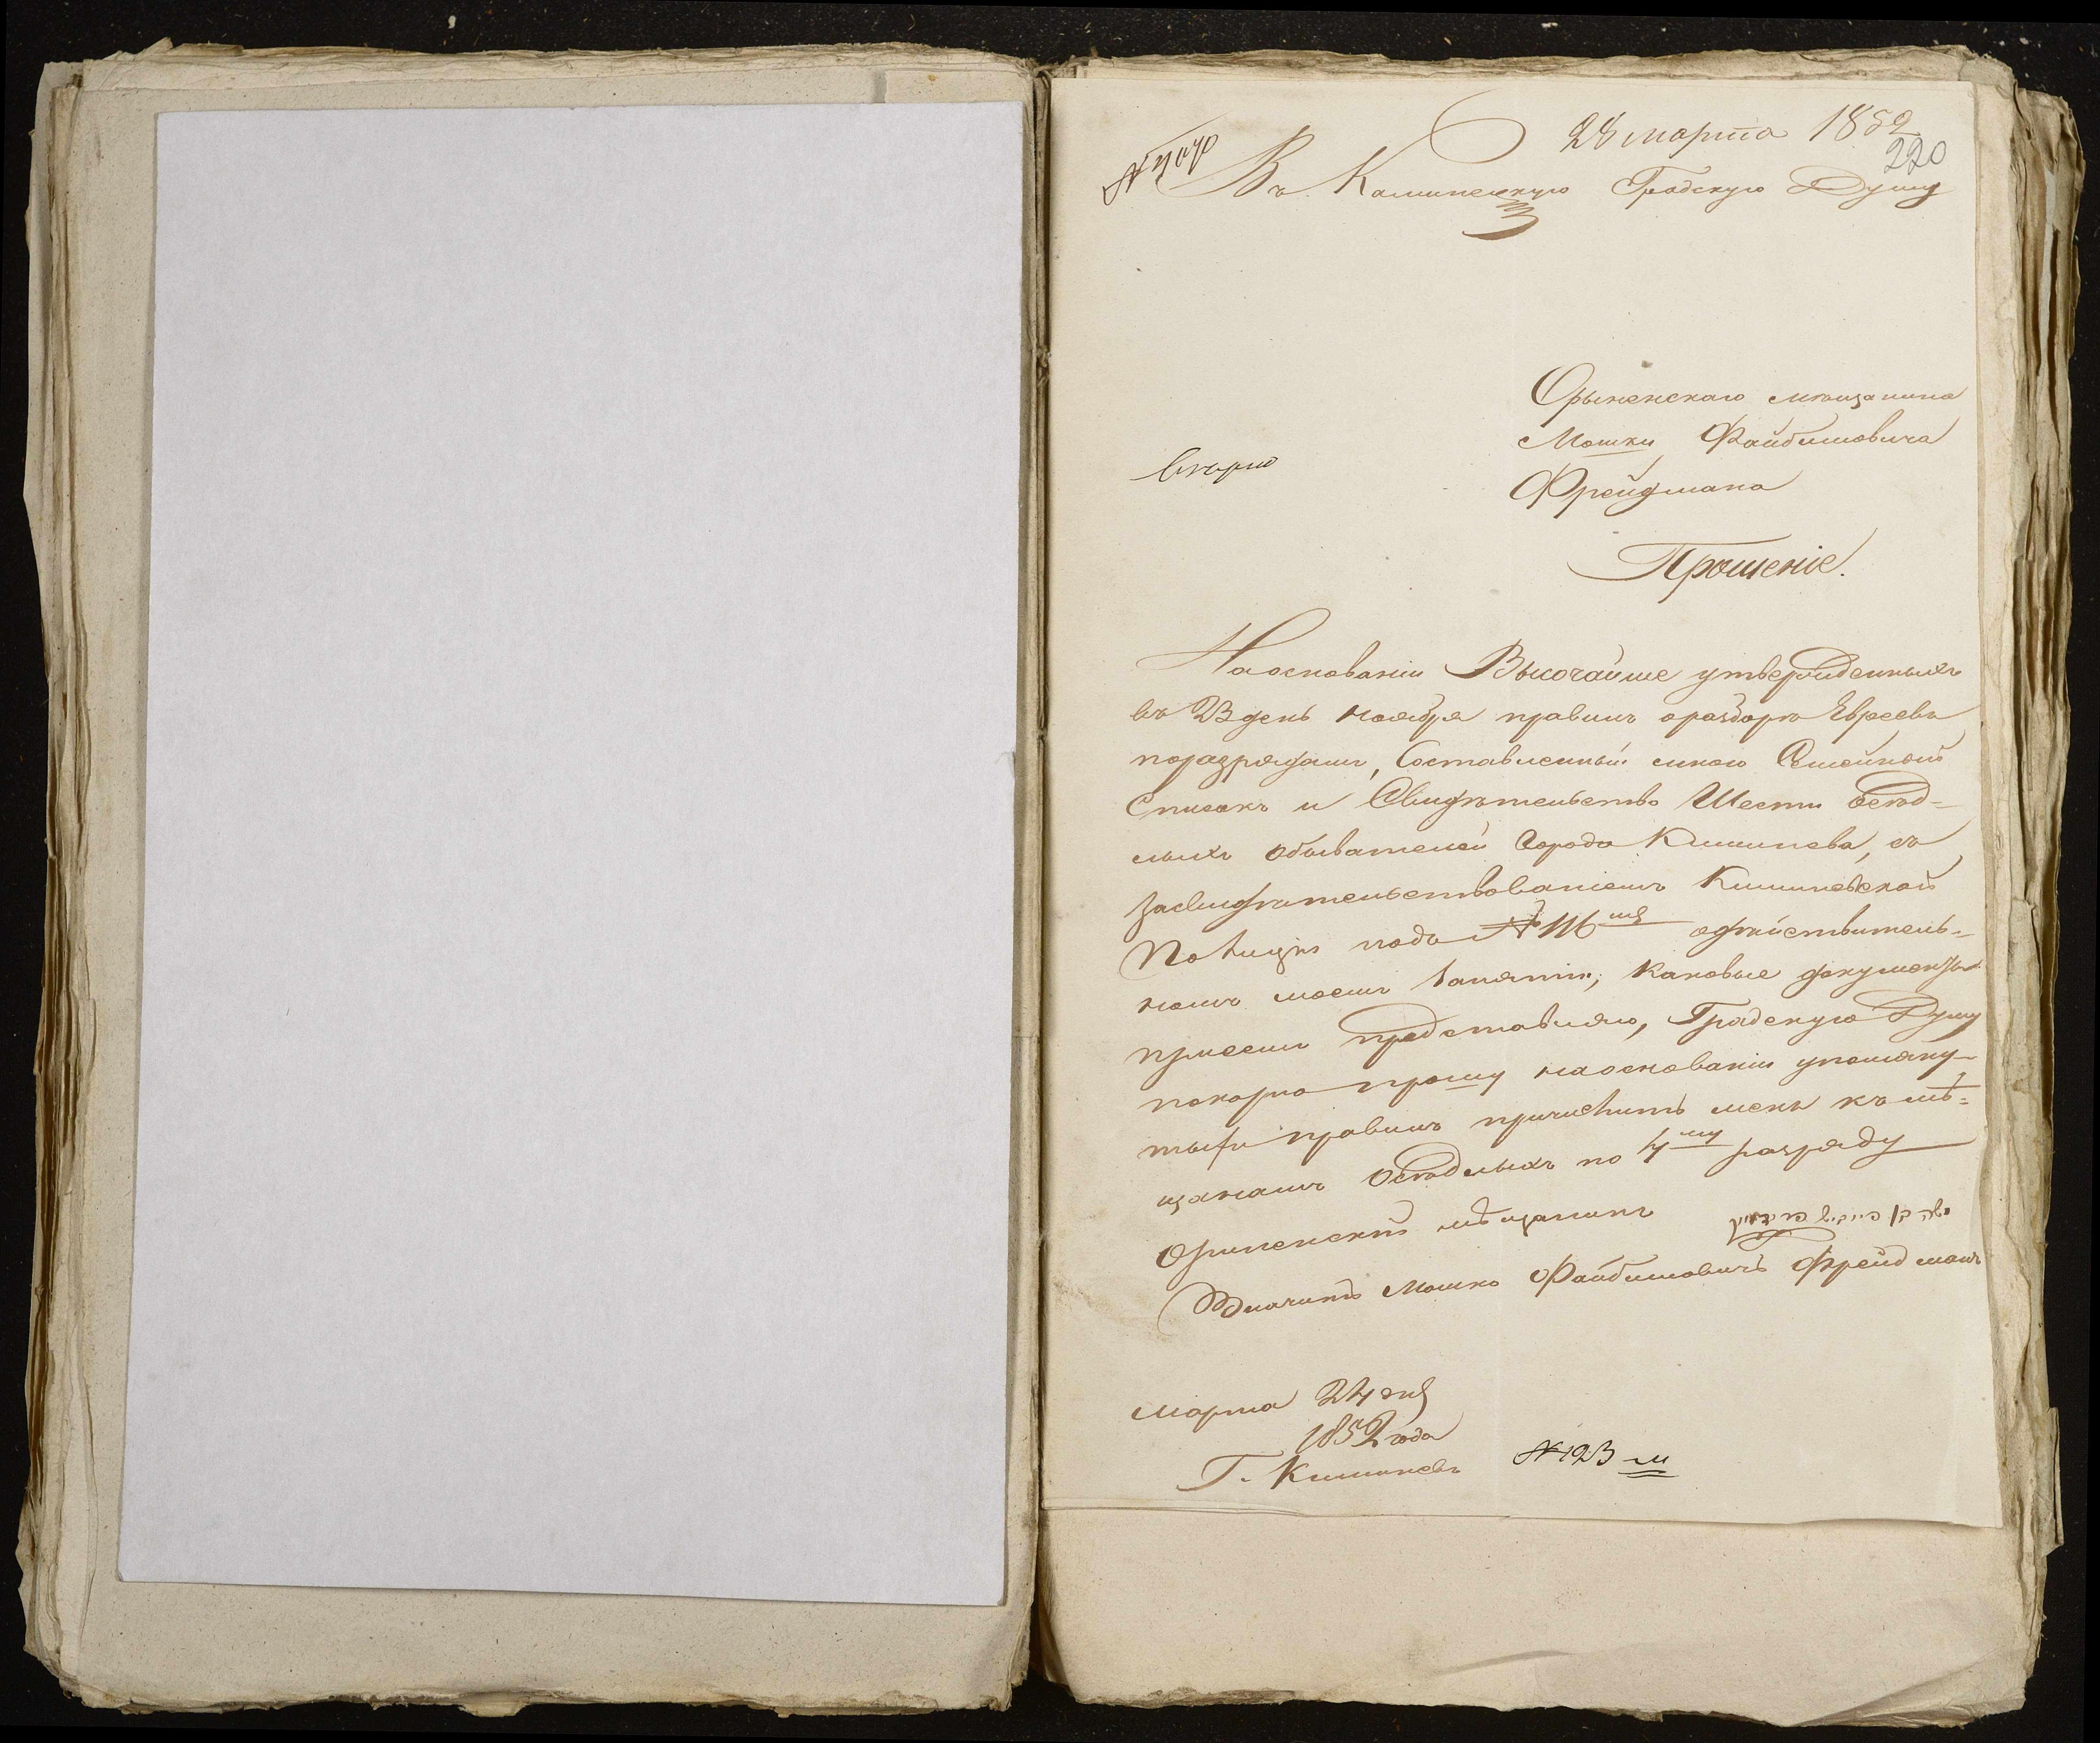 28 марта 1852
220
Въ Каминецкую Градскую Думу
Орыненскаго мѣщанина
Мошки Файбишовича
Фрейдмана
Прошеніе.
На основаніи Высочайше утвержденныхъ
въ 23 день ноября правилъ о разборѣ Евреевъ
по разрядамъ, Составленный мною Семейный
Списокъ и Свидѣтельство Шести осѣд-
лыхъ обывателей Города Кишинева, съ
засвидѣтельствованіемъ Кишиневской
Полиціи подъ № о дѣйствитель-
номъ моемъ занятіи, каковые документы
при семъ представляю, Градскую Думу
покорно прошу на основаніи упомяну-
тыхъ правилъ причислить меня къ мѣ-
щанамъ осѣдлымъ по 4му разряду
Орыненскій мѣщанинъ משה בן פייביש פרידמן
Значитъ Мошко Файбишовичъ Фрейдманъ
Марта 24 дня
1852 года
Г. Кишиневъ № 123